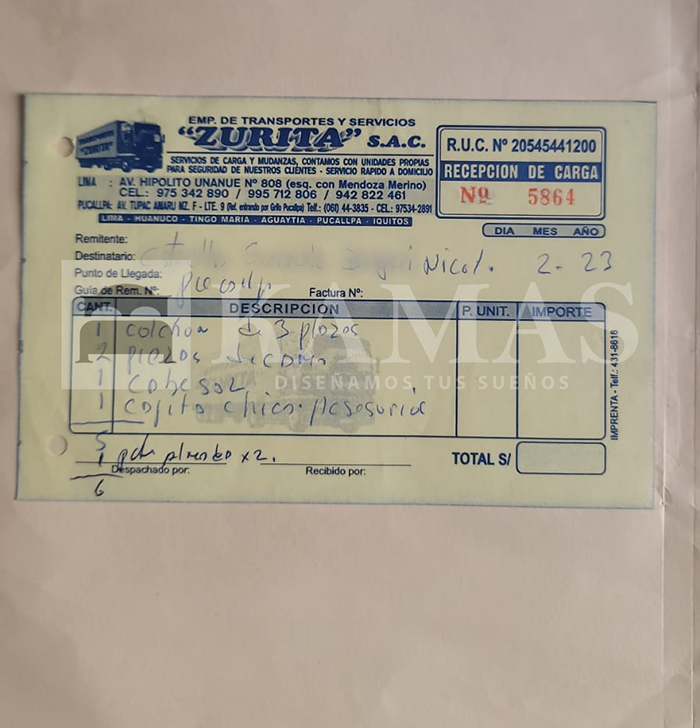 EMP. DE TRANSPORTES Y SERVICIOS
"ZURITA" S.A.C.
"ZURITA"
SERVICIOS DE CARGA Y MUDANZAS, CONTAMOS CON UNIDADES PROPIAS
PARA SEGURIDAD DE NUESTROS CLIENTES - SERVICIO RAPIDO A DOMICILIO
LIMA : AV. HIPOLITO UNANUE Nº 808 (esq. con Mendoza Merino)
CEL.: 975 342 890 / 995 712 806 / 942 822 461
PUCALLPA: AV. TUPAC AMARU MZ. F - LTE. 9 (Ref. entrando por Grifo Pucallpa) Telf.: (061) 44-3835 - CEL.: 97534-2891
LIMA - HUANUCO - TINGO MARIA - AGUAYTIA - PUCALLPA - IQUITOS
R.U.C. Nº 20545441200
RECEPCION DE CARGA
Nº 5864
DIA MES AÑO
Remitente:
Destinatario: Nicol. 2-23
Punto de Llegada: pucallp
Guía de Rem. Nº: Factura Nº:
KAMAS
DISEÑAMOS TUS SUEÑOS
CANT. DESCRIPCION P. UNIT. IMPORTE
1 colchon de 3 plazas
2 piezas
1 cabesal
1 cajita chica
5
1 x2.
6
Despachado por: Recibido por:
TOTAL S/
IMPRENTA - Telf.: 431-8616